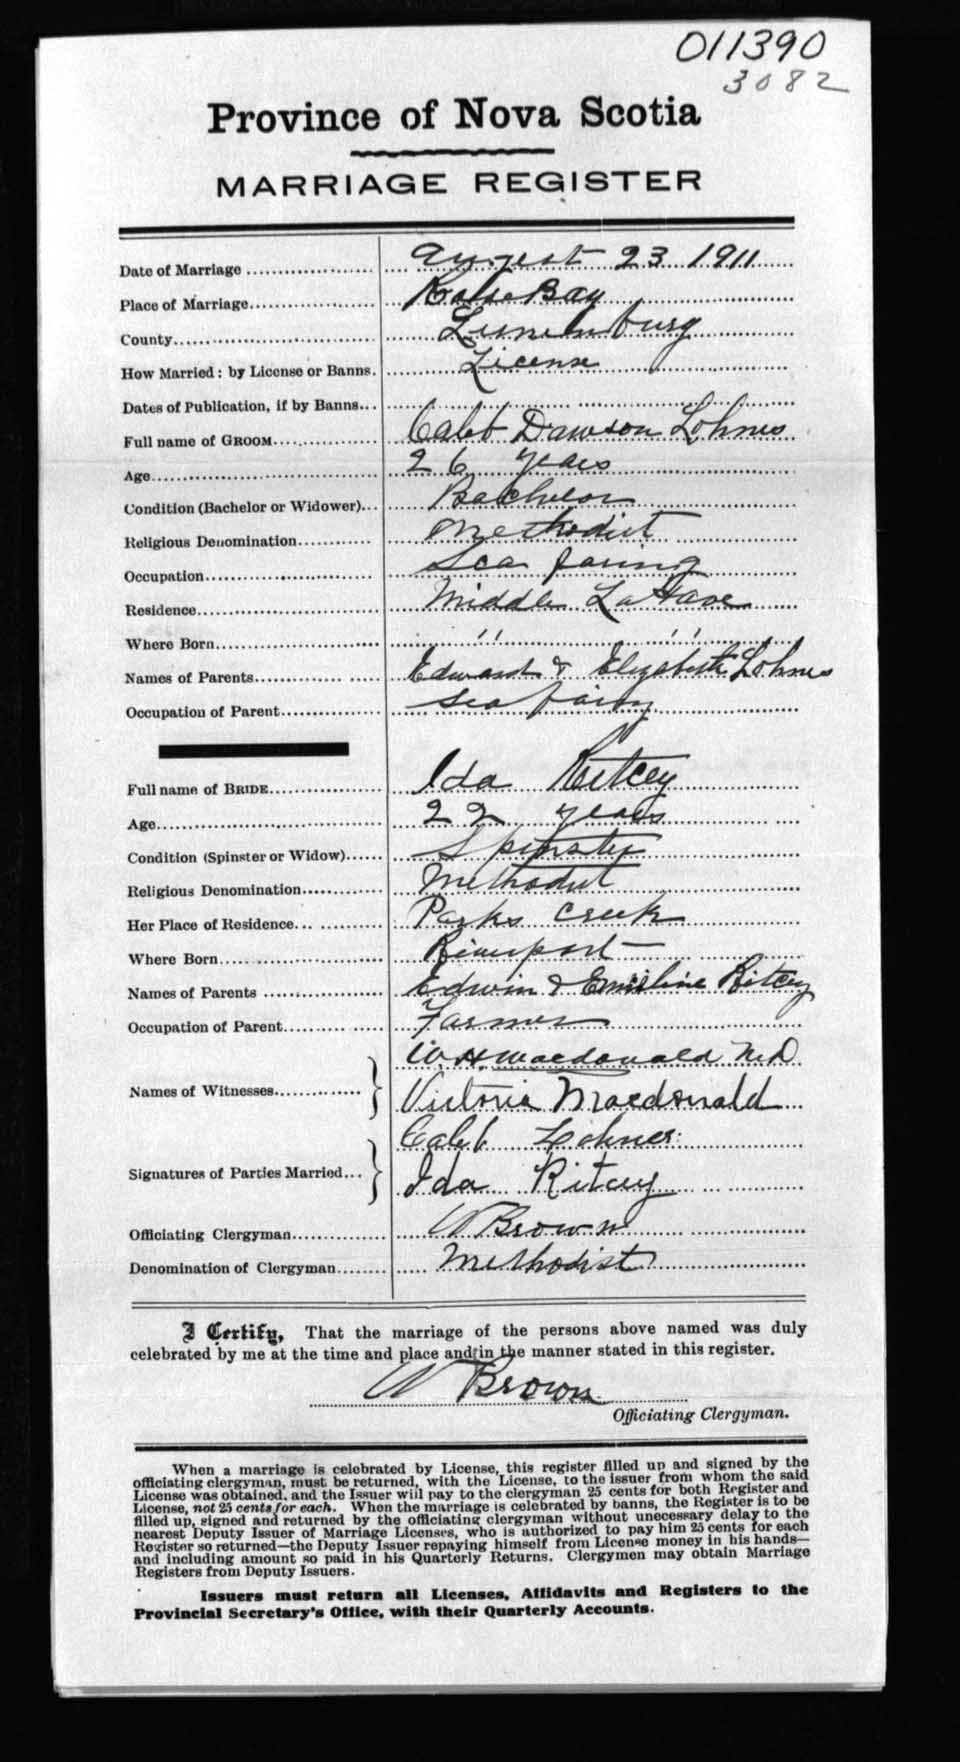 011390
3082
Province of Nova Scotia
MARRIAGE REGISTER
Date of Marriage August 23 1911
Place of Marriage Rose Bay
County Lunenburg
How Married: by License or Banns. License
Dates of Publication, if by Banns
Full name of GROOM Caleb Dawson Lohnes
Age 26 years
Condition (Bachelor or Widower) Bachelor
Religious Denomination Methodist
Occupation Sea faring
Residence Middle LaHave
Where Born " "
Names of Parents Edward & Elizabeth Lohnes
Occupation of Parent Sea faring
Full name of BRIDE Ida Ritcey
Age 22 years
Condition (Spinster or Widow) Spinster
Religious Denomination Methodist
Her Place of Residence Parks Creek
Where Born Riverport
Names of Parents Edwin & Emiline Ritcey
Occupation of Parent Farmer
Names of Witnesses W. H. Macdonald M.D.
Victoria Macdonald
Signatures of Parties Married Caleb Lohnes
Ida Ritcey
Officiating Clergyman W Brown
Denomination of Clergyman Methodist
I Certify, That the marriage of the persons above named was duly
celebrated by me at the time and place and in the manner stated in this register.
W Brown
Officiating Clergyman.
When a marriage is celebrated by License, this register filled up and signed by the
officiating clergyman, must be returned, with the License, to the issuer from whom the said
License was obtained, and the Issuer will pay to the clergyman 25 cents for both Register and
License, not 25 cents for each. When the marriage is celebrated by banns, the Register is to be
filled up, signed and returned by the officiating clergyman without unnecessary delay to the
nearest Deputy Issuer of Marriage Licenses, who is authorized to pay him 25 cents for each
Register so returned—the Deputy Issuer repaying himself from License money in his hands—
and including amount so paid in his Quarterly Returns. Clergymen may obtain Marriage
Registers from Deputy Issuers.
Issuers must return all Licenses, Affidavits and Registers to the
Provincial Secretary's Office, with their Quarterly Accounts.